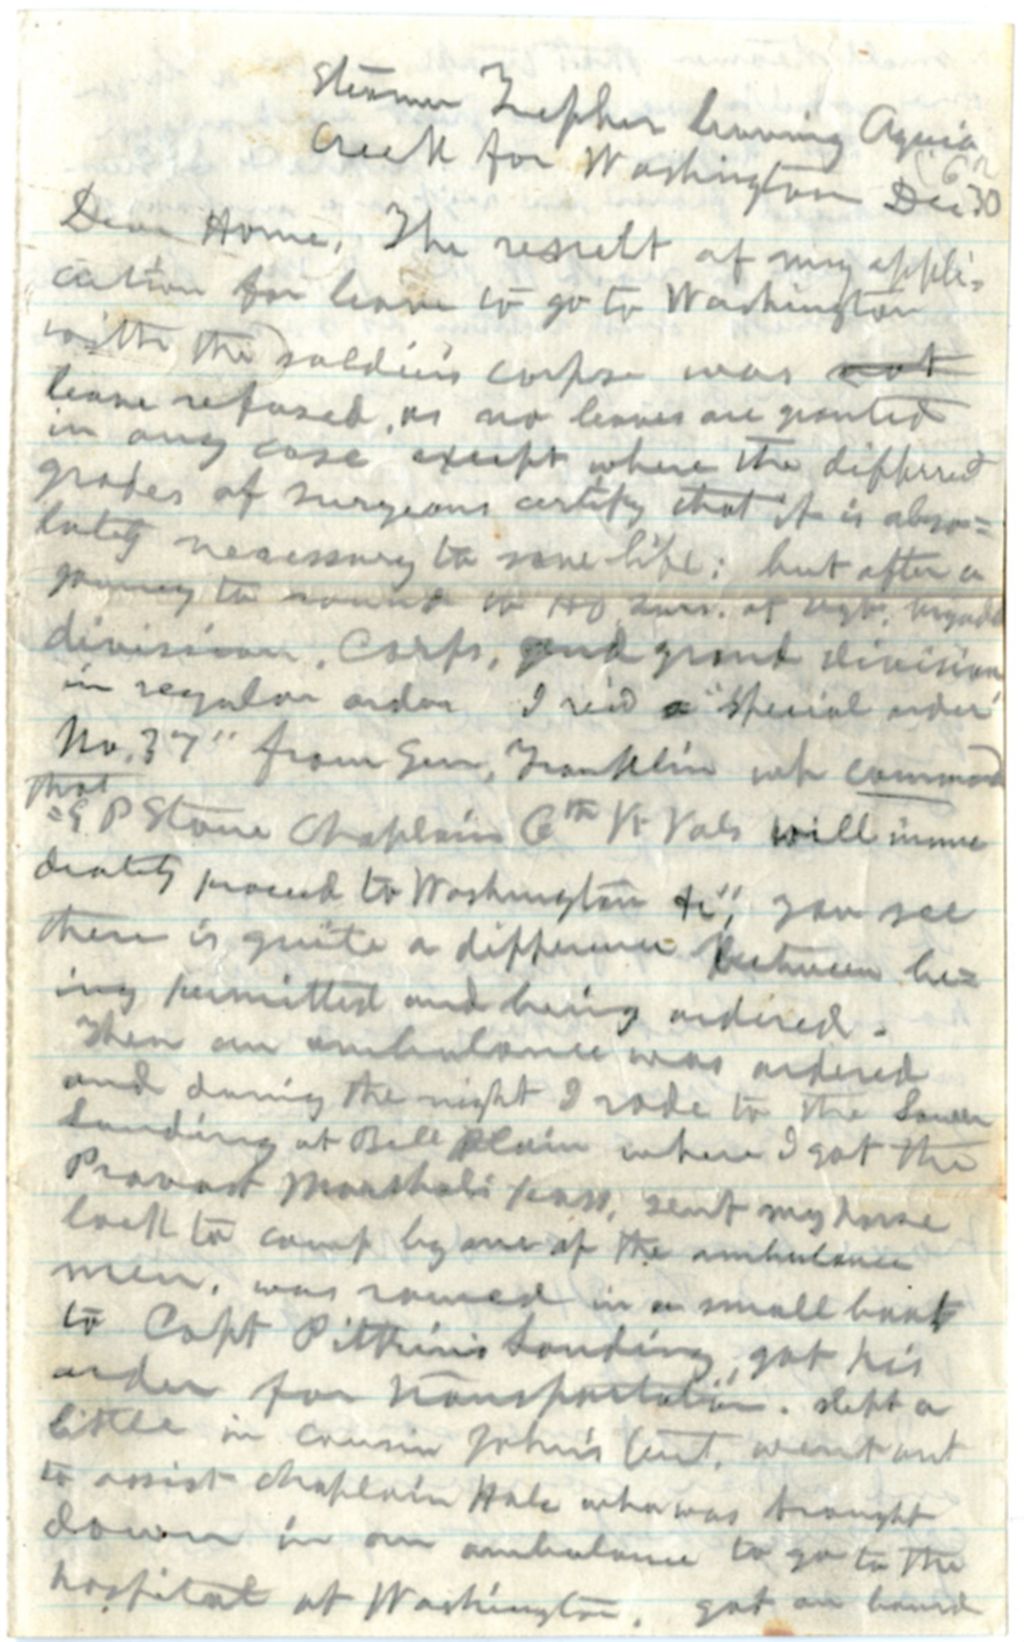 Steamer Zephyr leaving Aquia
Creek for Washington Dec 30
("62
Dear Home, The result of my appli-
cation for leave to go to Washington
with the soldiers corpse was not
leave refused, as no leaves are granted
in any case except where the different
grades of surgeons certify that it is abso=
lutely necessary to save life; but after a
journey to round to HD Qurs. of regt, brigade
division, Corps, and grand division
in regular order I rec'd a "special order
No. 37" from Gen, Franklin wh command
that
=E P Stone Chaplain 6th Vt Vols will imme
diately proceed to Washington &c", you see
there is quite a difference between be=
ing permitted and being ordered.
Then an ambulance was ordered
and during the night I rode to the Lower
Landing at Bell Plain where I got the
Provost Marshals pass, sent my horse
back to camp by one of the ambulance
men, was rowed in a small boat
to Capt Pitkin's Landing, got his
order for transportation. slept a
little in cousin John's tent, went out
to assist Chaplain Hale who was brought
down in an ambulance to go to the
hospital at Washington. got on board